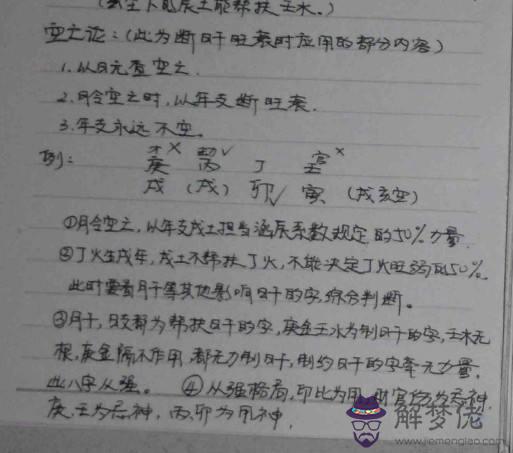 空亡论：(此为断日干旺衰时应用的部分内容)
1.从日元查空亡.
2.月令空亡时,从年支断旺衰.
3.年支永远不空。
例：庚× 丙√ 丁 壬×
戌 (戌) 卯√ 寅 (戌亥空)
①月令空亡,从年支戌土担当 系数规定的50%力量.
②丁火生戌年,戌土不帮扶丁火,不能决定丁火旺弱的50%.
此时要看月干等其他影响日干的字,综合判断。
③月干,日支都为帮扶日干的字,庚金壬水为制日干的字,壬水无
根,庚金隔不作用,都无力制日干,制约日干的字毫无力量.
此八字从强。 ④从强格局,印比为用,财官伤为忌神.
庚.壬为忌神,丙.卯为用神.
解梦佬
www.jiemenglao.com